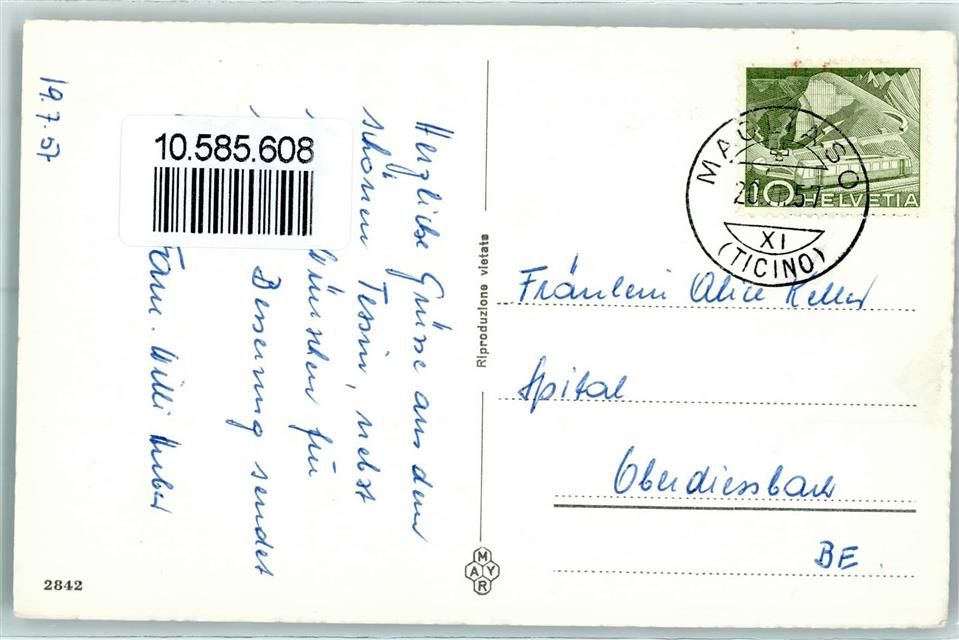 19.7.57
Herzliche Grüsse aus dem
schönen Tessin, nebst
Wünschen für
Besserung sendet
Fam. Willi Huber
10.585.608
Riproduzione vietata
MAYR
2842
MAGLIASO
20. 57
XI
(TICINO)
10 HELVETIA
Fräulein Alice Keller
Spital
Oberdiessbach
BE.